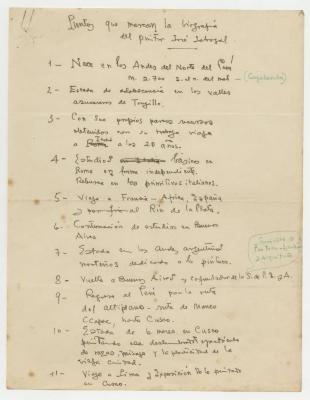 Puntos que marcan la biografía
del pintor José Sabogal.
1 — Nace en los Andes del Norte del Perú
m. 2.700 s. n. del mar — (Cajabamba)
2 — Estada de adolescencia en los valles
azucareros de Trujillo.
3 — Con sus propios parcos recursos
obtenidos con su trabajo viaja
a Italia a los 20 años.
4 — Estudios básicos en
Roma en forma independiente.
en los primitivos italianos.
5 — Viaje a Francia – Africa, España
y al Río de la Plata.
6 — Continuación de estudios en Buenos
Aires
7 — Estada en los andes argentinos
norteños dedicado a la pintura.
8 — Vuelta a Buenos Aires y
9 — Regreso al Perú por la ruta
del altiplano – ruta de Manco
Ccapac, hasta Cusco.
10 — Estada de 6 meses en Cusco
pintando ese deslumbrante espectáculo
de razas paisaje y la of la
vieja ciudad.
11 — Viaje a Lima y Exposición de lo pintado
en Cusco.